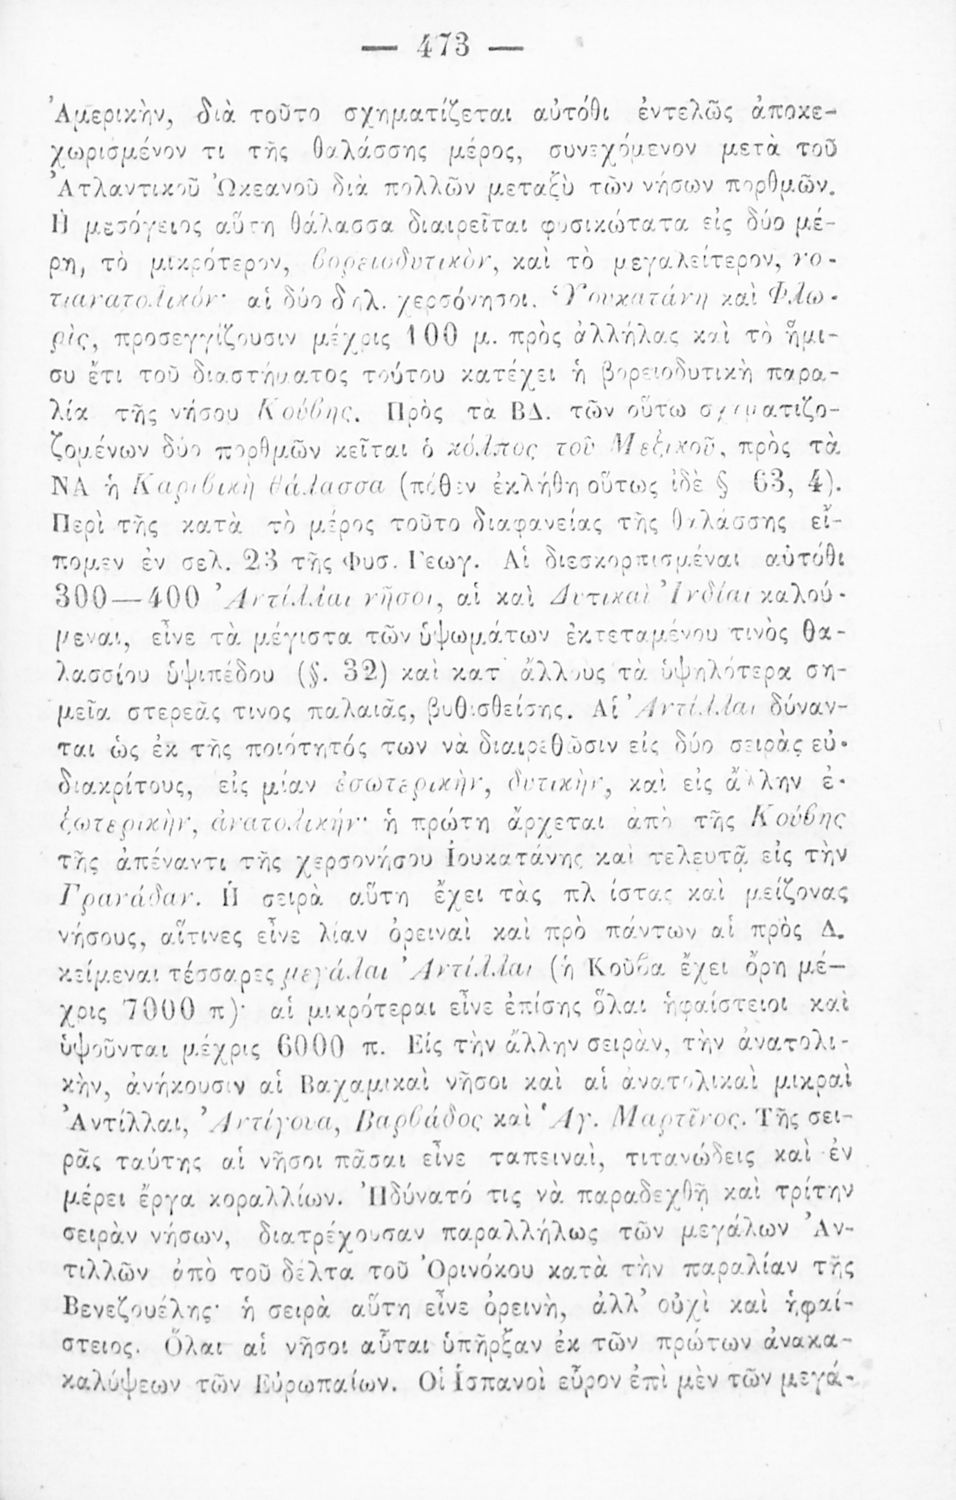 — 473 —
Ἀμερικὴν, διὰ τοῦτο σχηματίζεται αὐτόθι ἐντελῶς ἀποκε-
χωρισμένον τι τῆς θαλάσσης μέρος, συνεχόμενον μετὰ τοῦ
Ἀτλαντικοῦ Ὠκεανοῦ διὰ πολλῶν μεταξὺ τῶν νήσων πορθμῶν.
Ἡ μεσόγειος αὕτη θάλασσα διαιρεῖται φυσικώτατα εἰς δύο μέ-
ρη, τὸ μικρότερον, βορειοδυτικὸν, καὶ τὸ μεγαλείτερον, νο-
τιανατολικόν· αἱ δύο δηλ. χερσόνησοι. Ὑουκατάνη καὶ Φλω-
ρὶς, προσεγγίζουσιν μέχρις 100 μ. πρὸς ἀλλήλας καὶ τὸ ἥμι-
συ ἔτι τοῦ διαστήματος τούτου κατέχει ἡ βορειοδυτικὴ παρα-
λία τῆς νήσου Κούβης. Πρὸς τὰ ΒΔ. τῶν οὕτω σχηματιζο-
ζομένων δύο πορθμῶν κεῖται ὁ κόλπος τοῦ Μεξικοῦ, πρὸς τὰ
ΝΑ ἡ Καριβικὴ θάλασσα (πόθεν ἐκλήθη οὕτως ἰδὲ § 63, 4).
Περὶ τῆς κατὰ τὸ μέρος τοῦτο διαφανείας τῆς θαλάσσης εἴ-
πομεν ἐν σελ. 23 τῆς Φυσ. Γεωγ. Αἱ διεσκορπισμέναι αὐτόθι
300—400 Ἀντίλλαι νῆσοι, αἱ καὶ Δυτικαὶ Ἰνδίαι καλού-
μεναι, εἶνε τὰ μέγιστα τῶν ὑψωμάτων ἐκτεταμένου τινὸς θα-
λασσίου ὑψιπέδου (§. 32) καὶ κατ' ἄλλους τὰ ὑψηλότερα ση-
μεῖα στερεᾶς τινος παλαιᾶς, βυθισθείσης. Αἱ Ἀντίλλαι δύναν-
ται ὡς ἐκ τῆς ποιότητός των νὰ διαιρεθῶσιν εἰς δύο σειρὰς εὐ-
διακρίτους, εἰς μίαν ἐσωτερικὴν, δυτικὴν, καὶ εἰς ἄλλην ἐ-
ξωτερικὴν, ἀνατολικήν· ἡ πρώτη ἄρχεται ἀπὸ τῆς Κούβης
τῆς ἀπέναντι τῆς χερσονήσου Ἰουκατάνης καὶ τελευτᾷ εἰς τὴν
Γρανάδαν. Ἡ σειρὰ αὕτη ἔχει τὰς πλ ίστας καὶ μείζονας
νήσους, αἵτινες εἶνε λίαν ὀρειναὶ καὶ πρὸ πάντων αἱ πρὸς Δ.
κείμεναι τέσσαρες μεγάλαι Ἀντίλλαι (ἡ Κοῦβα ἔχει ὄρη μέ—
χρις 7000 π)· αἱ μικρότεραι εἶνε ἐπίσης ὅλαι ἡφαίστειοι καὶ
ὑψοῦνται μέχρις 6000 π. Εἰς τὴν ἄλλην σειρὰν, τὴν ἀνατολι-
κὴν, ἀνήκουσιν αἱ Βαχαμικαὶ νῆσοι καὶ αἱ ἀνατολικαὶ μικραὶ
Ἀντίλλαι, Ἀντίγουα, Βαρβάδος καὶ Ἁγ. Μαρτῖνος. Τῆς σει-
ρᾶς ταύτης αἱ νῆσοι πᾶσαι εἶνε ταπειναὶ, τιτανώδεις καὶ ἐν
μέρει ἔργα κοραλλίων. Ἠδύνατό τις νὰ παραδεχθῇ καὶ τρίτην
σειρὰν νήσων, διατρέχουσαν παραλλήλως τῶν μεγάλων Ἀν-
τιλλῶν ἀπὸ τοῦ δέλτα τοῦ Ὀρινόκου κατὰ τὴν παραλίαν τῆς
Βενεζουέλης· ἡ σειρὰ αὕτη εἶνε ὀρεινὴ, ἀλλ' οὐχὶ καὶ ἡφαί-
στειος. Ὅλαι αἱ νῆσοι αὗται ὑπῆρξαν ἐκ τῶν πρώτων ἀνακα-
καλύψεων τῶν Εὐρωπαίων. Οἱ Ἱσπανοὶ εὗρον ἐπὶ μὲν τῶν μεγά-